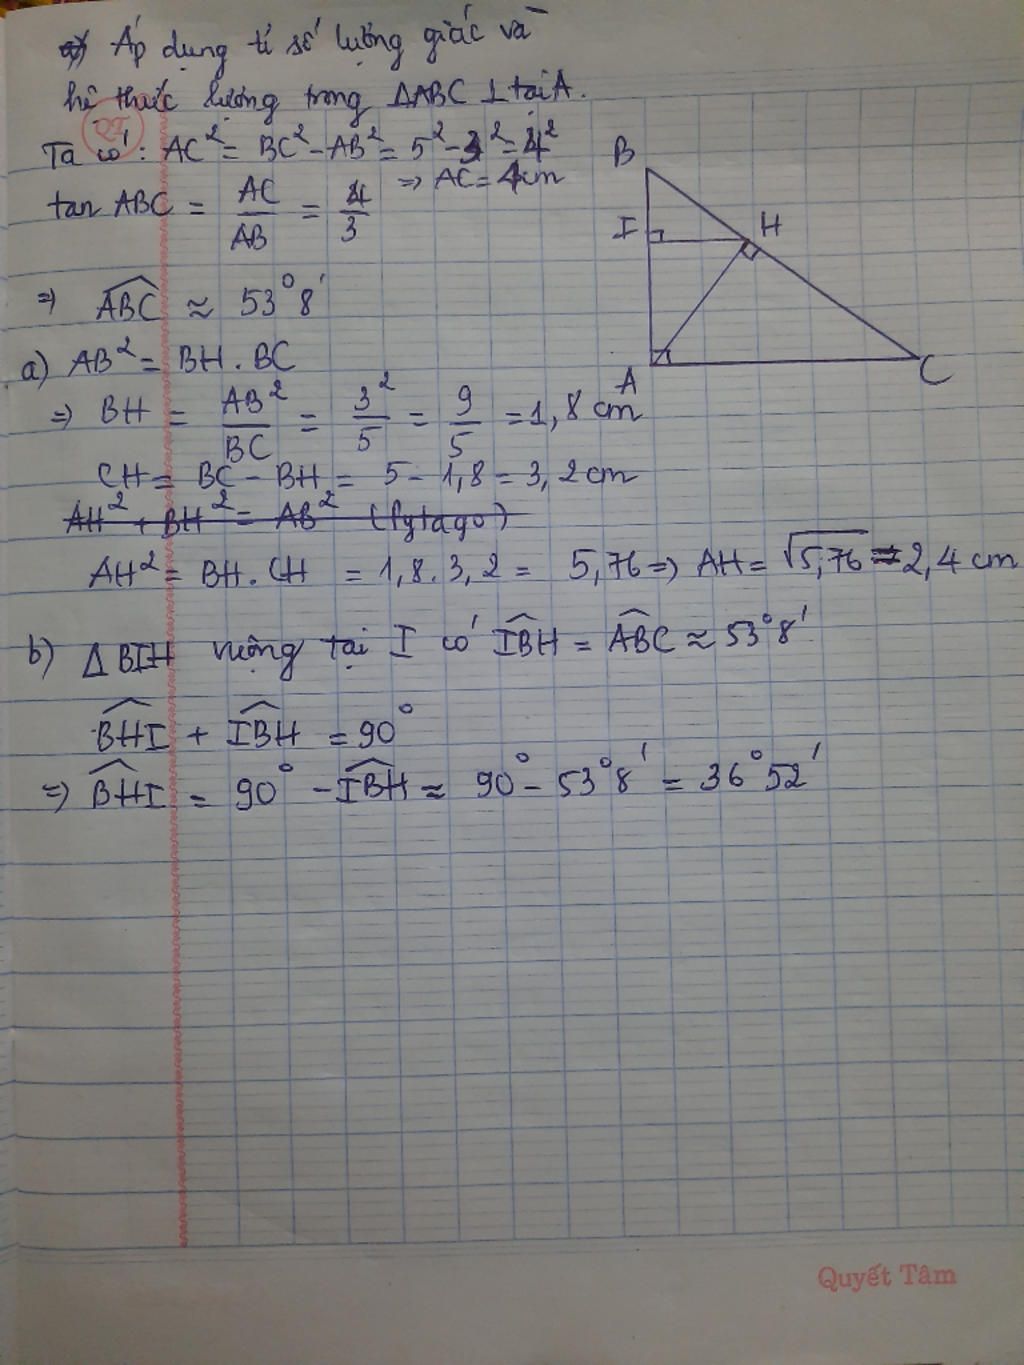 a) Áp dụng tỉ số lượng giác và
hệ thức lượng trong ΔABC ⊥ tại A.
Ta có: AC² = BC² - AB² = 5² - 3² = 4²
⇒ AC = 4cm
tan ABC = AC/AB = 4/3
⇒ \widehat{ABC} ≈ 53°8'
B
I
H
A
C
a) AB² = BH . BC
⇒ BH = AB²/BC = 3²/5 = 9/5 = 1,8 cm
CH = BC - BH = 5 - 1,8 = 3,2 cm
AH² + BH² = AB² (Pytago)
AH² = BH . CH = 1,8 . 3,2 = 5,76 ⇒ AH = √5,76 = 2,4 cm
b) Δ BIH vuông tại I có \widehat{IBH} = \widehat{ABC} ≈ 53°8'
\widehat{BHI} + \widehat{IBH} = 90°
⇒ \widehat{BHI} = 90° - \widehat{IBH} ≈ 90° - 53°8' = 36°52'
Quyết Tâm